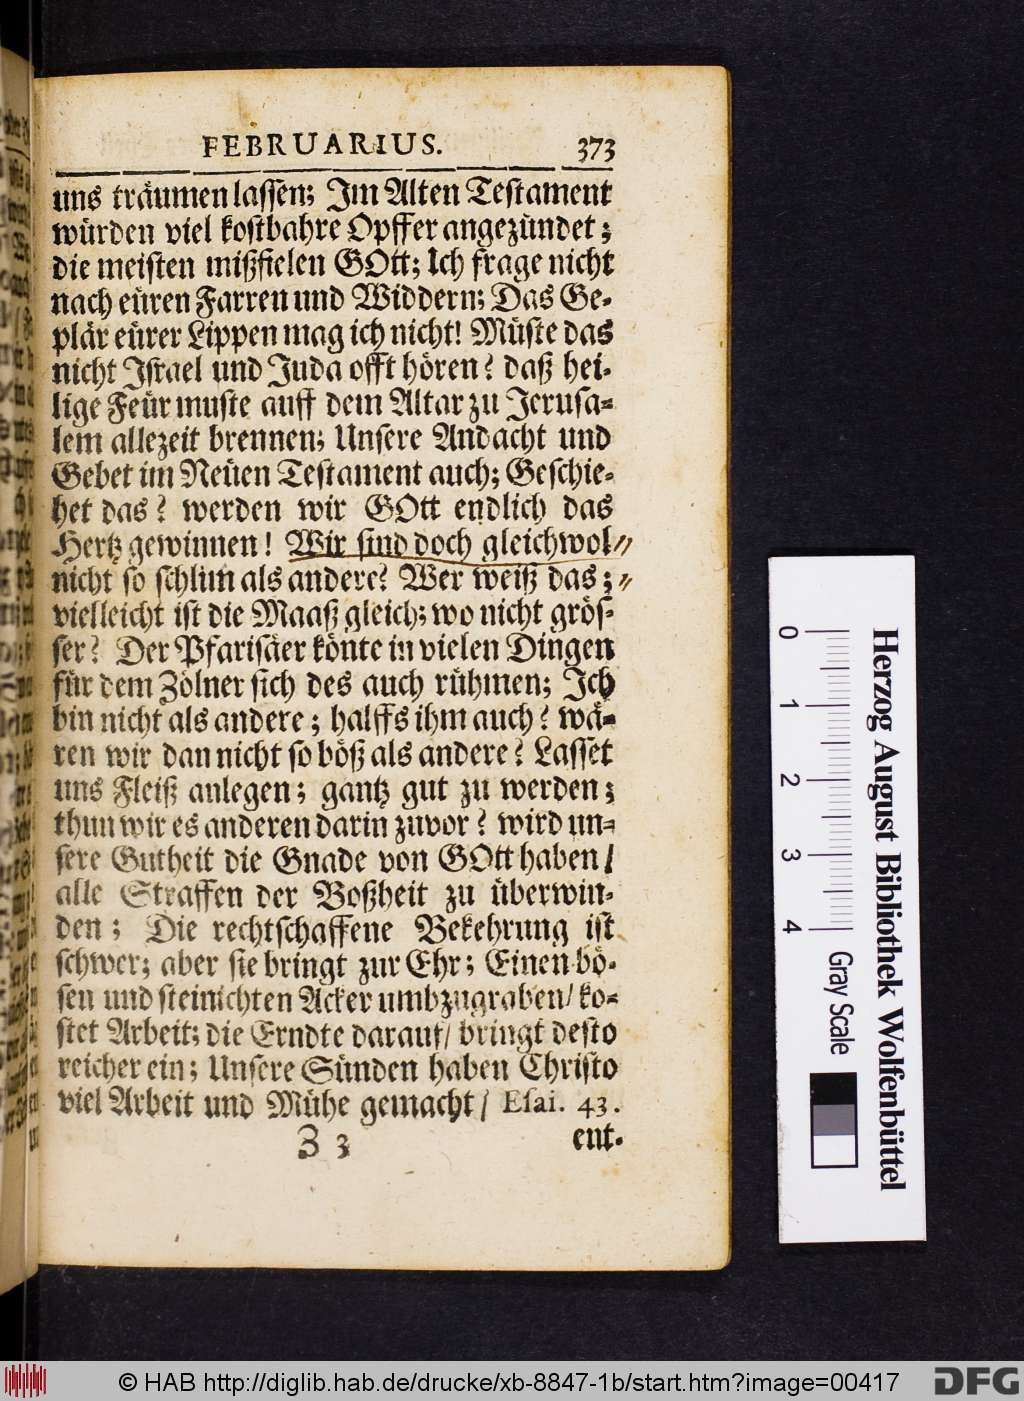 FEBRUARIUS. 373
uns träumen lassen; Im Alten Testament
würden viel kostbahre Opffer angezündet;
die meisten mißfielen GOtt; Ich frage nicht
nach eüren Farren und Widdern; Das Ge-
plär eürer Lippen mag ich nicht! Müste das
nicht Israel und Juda offt hören? daß hei-
lige Feür muste auff dem Altar zu Jerusa-
lem allezeit brennen; Unsere Andacht und
Gebet im Neüen Testament auch; Geschie-
het das? werden wir GOtt endlich das
Hertz gewinnen! Wir sind doch gleichwol
nicht so schlim als andere? Wer weiß das;
vielleicht ist die Maaß gleich; wo nicht grös-
ser? Der Pfarisäer könte in vielen Dingen
für dem Zölner sich des auch rühmen; Ich
bin nicht als andere; halffs ihm auch? wä-
ren wir dan nicht so böß als andere? Lasset
uns Fleiß anlegen; gantz gut zu werden;
thun wir es anderen darin zuvor? wird un-
sere Gutheit die Gnade von GOtt haben/
alle Straffen der Boßheit zu überwin-
den; Die rechtschaffene Bekehrung ist
schwer; aber sie bringt zur Ehr; Einen bö-
sen und steinichten Acker umbzugraben/ ko-
stet Arbeit; die Erndte darauf/ bringt desto
reicher ein; Unsere Sünden haben Christo
viel Arbeit und Mühe gemacht/ Esai. 43.
Z 3 ent-
0 1 2 3 4
Gray Scale
Herzog August Bibliothek Wolfenbüttel
© HAB http://diglib.hab.de/drucke/xb-8847-1b/start.htm?image=00417
DFG